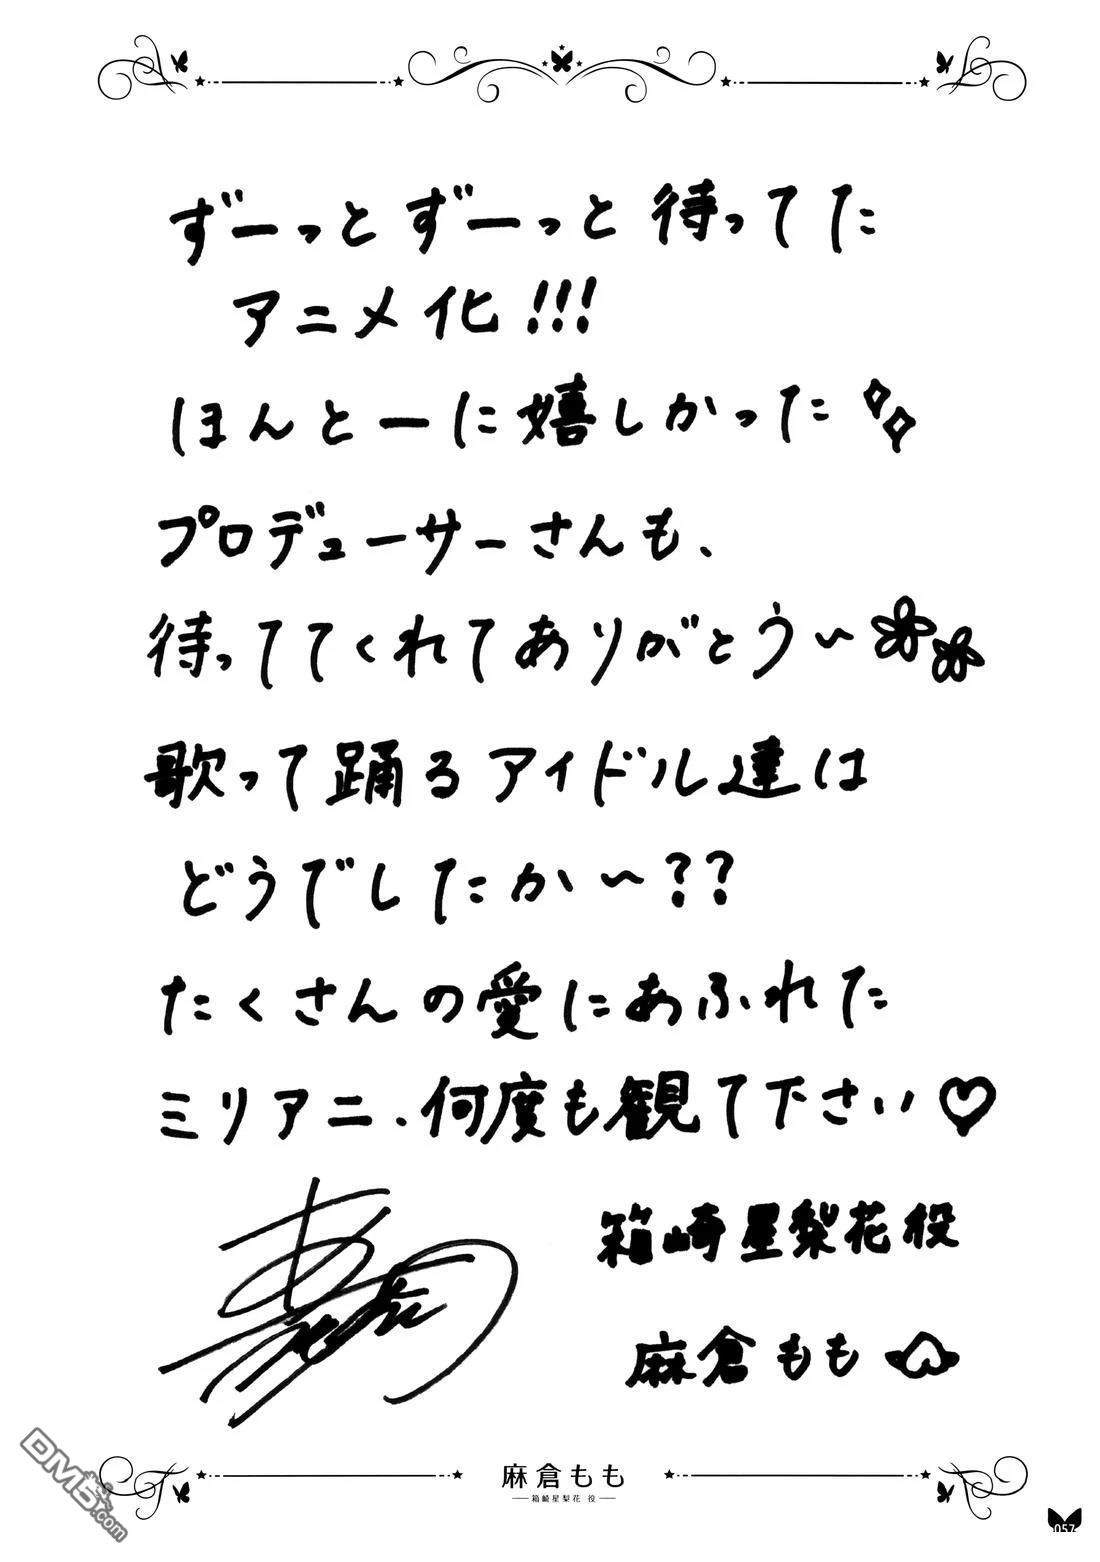 ずーっとずーっと待ってた
アニメ化!!!
ほんとーに嬉しかった
プロデューサーさんも、
待っててくれてありがとう〜
歌って踊るアイドル達は
どうでしたか〜??
たくさんの愛にあふれた
ミリアニ、何度も観て下さい♡
箱崎星梨花役
麻倉もも
麻倉もも
箱崎星梨花 役
DM5.com
057